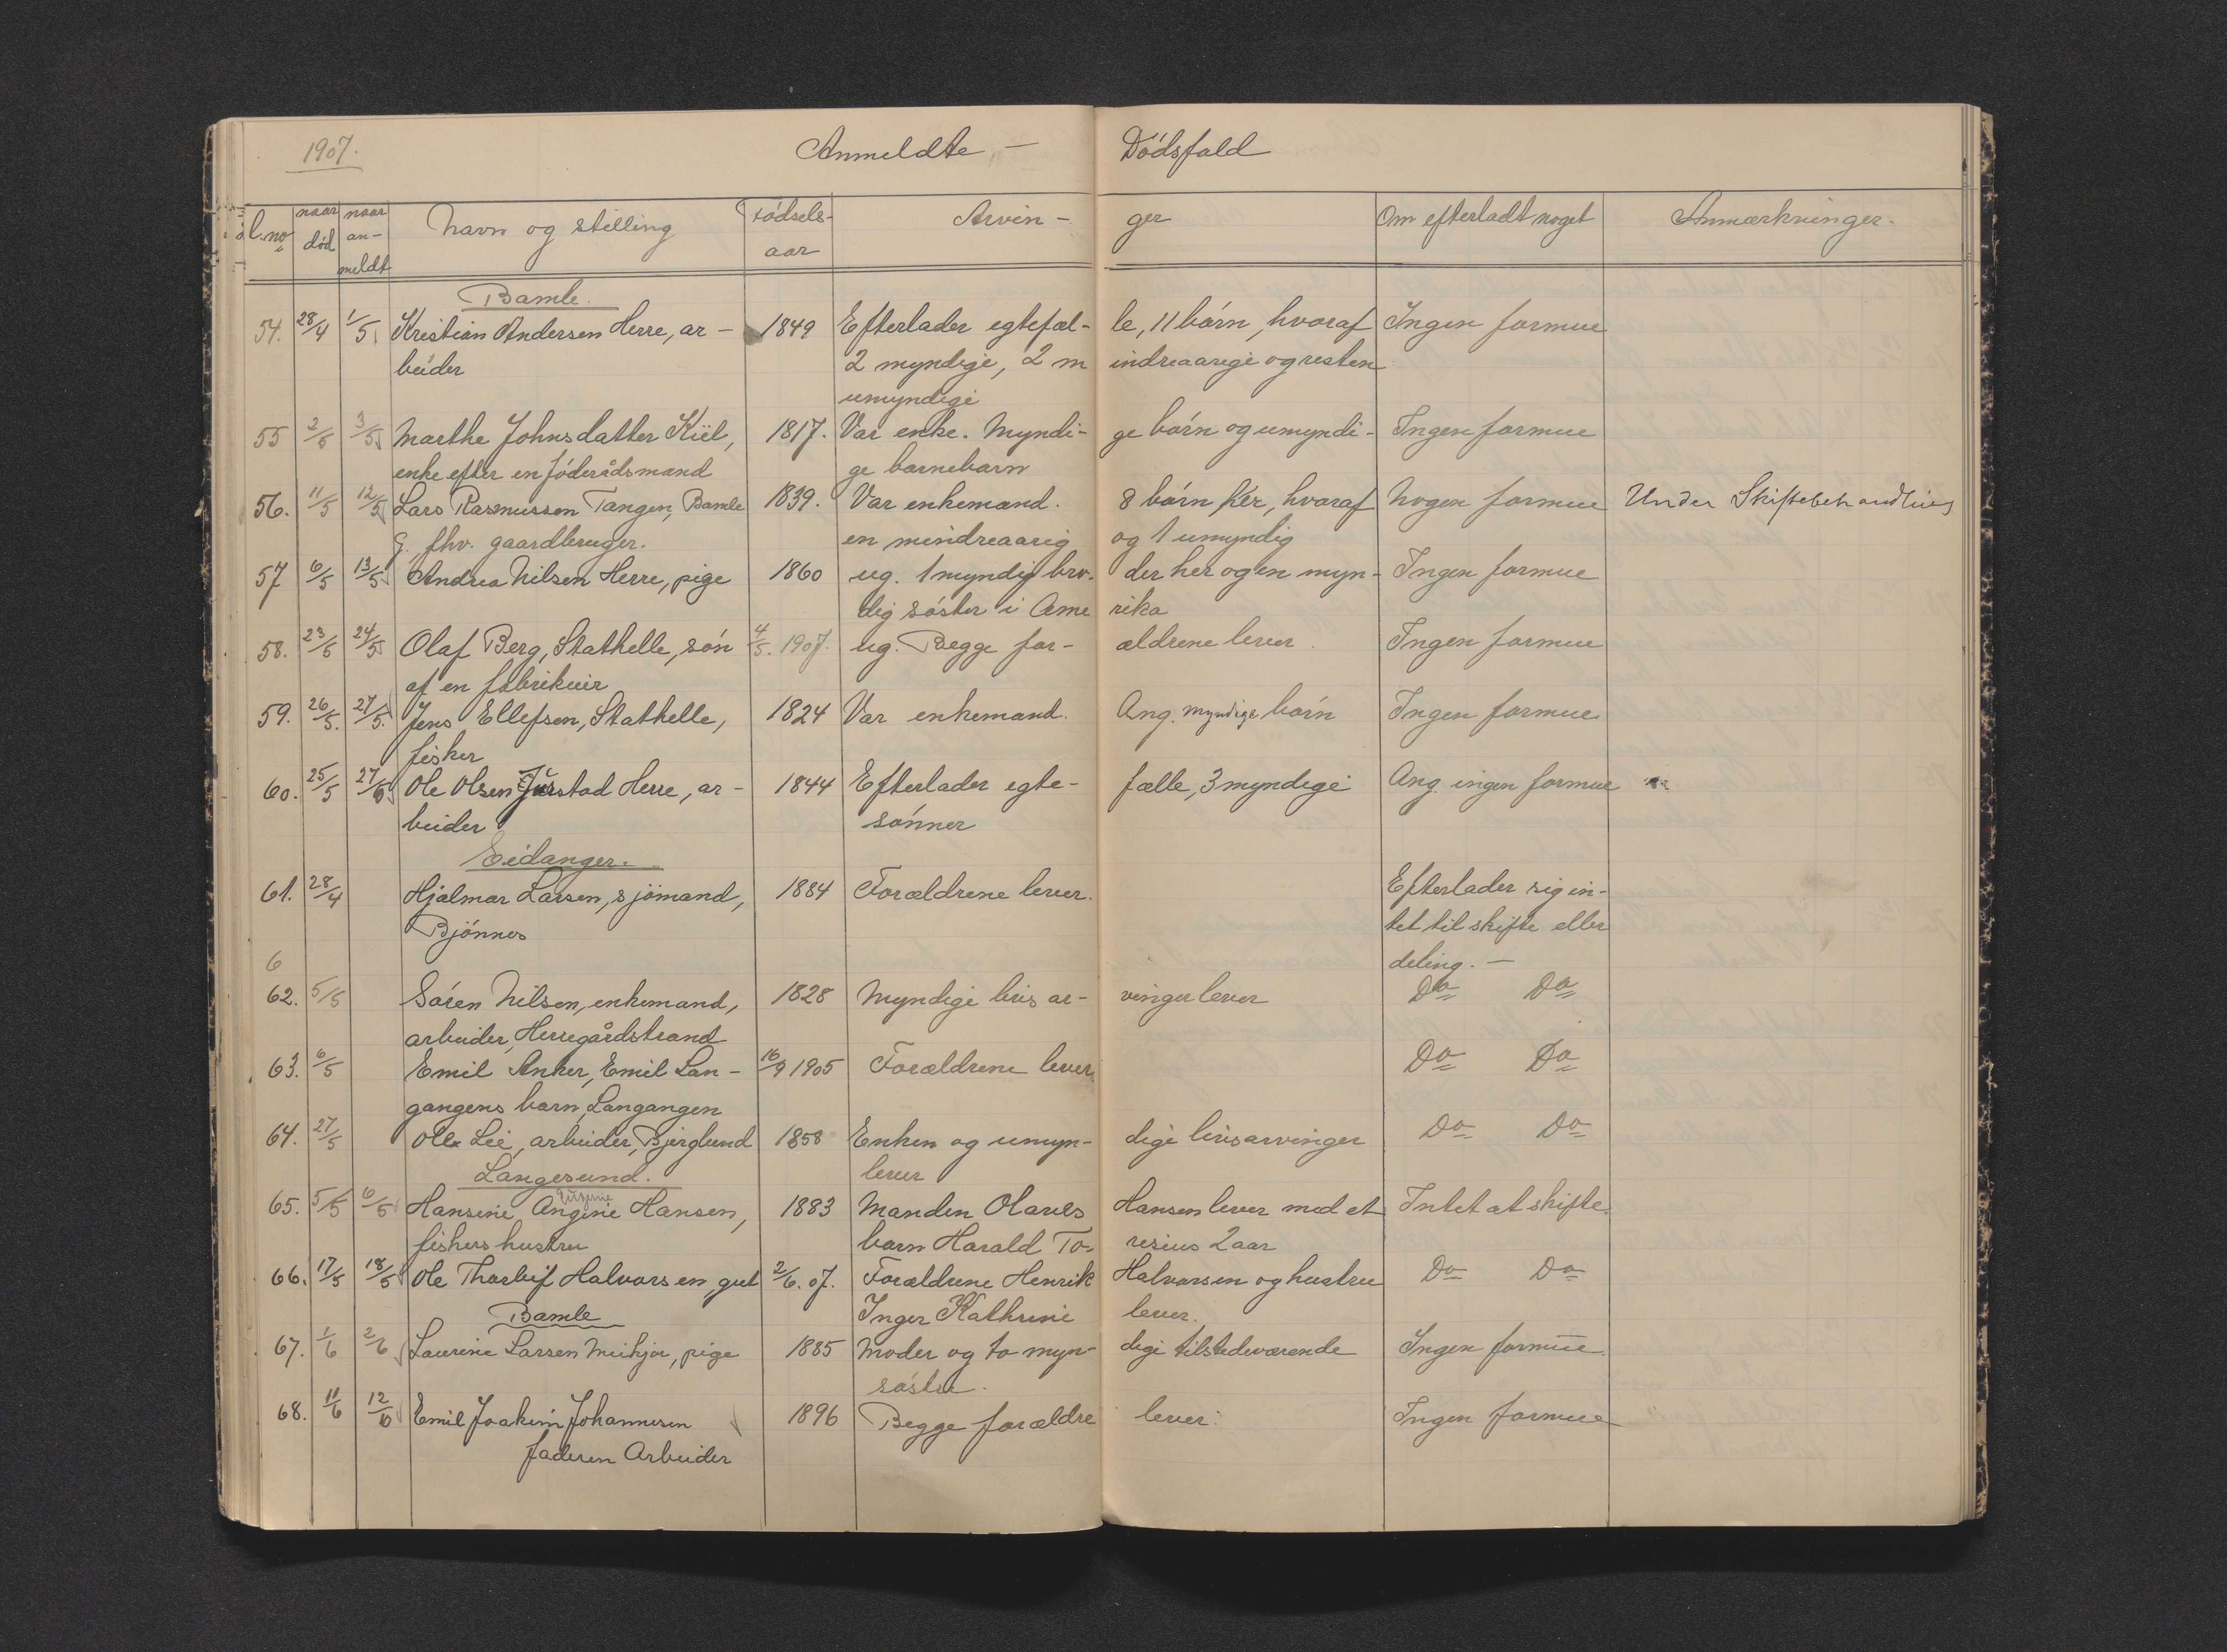 1907.
Anmeldte — Dödsfald
l.no naar död naar an-meldt Navn og stilling Födsels-aar Arvin-ger Om efterladt noget Anmærkninger.
Bamle.
54. 28/4 1/5 Kristian Andersen Herre, ar- 1849 Efterlader egtefæl-le, 11 börn, hvoraf Ingen formue
beider 2 myndige, 2 mindreaarige og resten
umyndige
55 2/5 3/5 Marthe Johnsdatter Kiil, 1817. Var enke. Myndi-ge börn og umyndi- Ingen formue
enke efter en föderådsmand ge barnebarn
56. 11/5 12/5 Lars Rasmussen Tangen, Bamle 1839. Var enkemand. 8 börn her, hvoraf Nogen formue Under Skiftebehandling
G. fhv. gaardbruger. en mindreaarig og 1 umyndig
57 6/5 13/5 Andrea Nilsen Herre, pige 1860 ug. 1 myndig bro-der her og en myn- Ingen formue
dig söster i Amerika
58. 23/5 24/5 Olaf Berg, Stathelle, sön 4/5. 1907. ug. Begge for-ældrene lever. Ingen formue
af en fabrikeier
59. 26/5. 27/5. Jens Ellefsen, Stathelle, 1824 Var enkemand. Ang. myndige börn Ingen formue
fisker
60. 25/5 27/5 Ole Olsen Jurstad Herre, ar- 1844 Efterlader egte-fælle, 3 myndige Ang. ingen formue
beider sönner
Eidanger.
61. 28/4 Hjalmar Larsen, sjömand, 1884 Forældrene lever. Efterlader sig in-
Bjönnes tet til skifte eller
6 deling. —
62. 5/5 Sören Nilsen, enkemand, 1828 Myndige livsar-vinger lever Do Do
arbeider, Herregårdstrand
63. 6/5 Emil Anker, Emil Lan- 16/9 1905 Forældrene lever. Do Do
gangens barn, Langangen
64. 27/5 Ole Lie, arbeider, Bjerglund 1858 Enken og umyn-dige livsarvinger Do Do
Langesund. lever
65. 5/5 6/5 Hansine Angine Hansen, 1883 Manden Olaves Hansen lever med et Intet at skifte.
fiskers hustru barn Harald To-resius 2 aar
66. 17/5 18/5 Ole Thorleif Halvorsen, gut 2/6. 07. Forældrene Henrik Halvorsen og hustru Do Do
Bamle Inger Kathrine lever.
67. 1/6 2/6 Laurine Larsen Meihjor, pige 1885 Moder og to myn-dige tilstedeværende Ingen formue.
söstre.
68. 11/6 12/6 Emil Joakim Johannesen 1896 Begge forældre lever. Ingen formue
faderen Arbeider